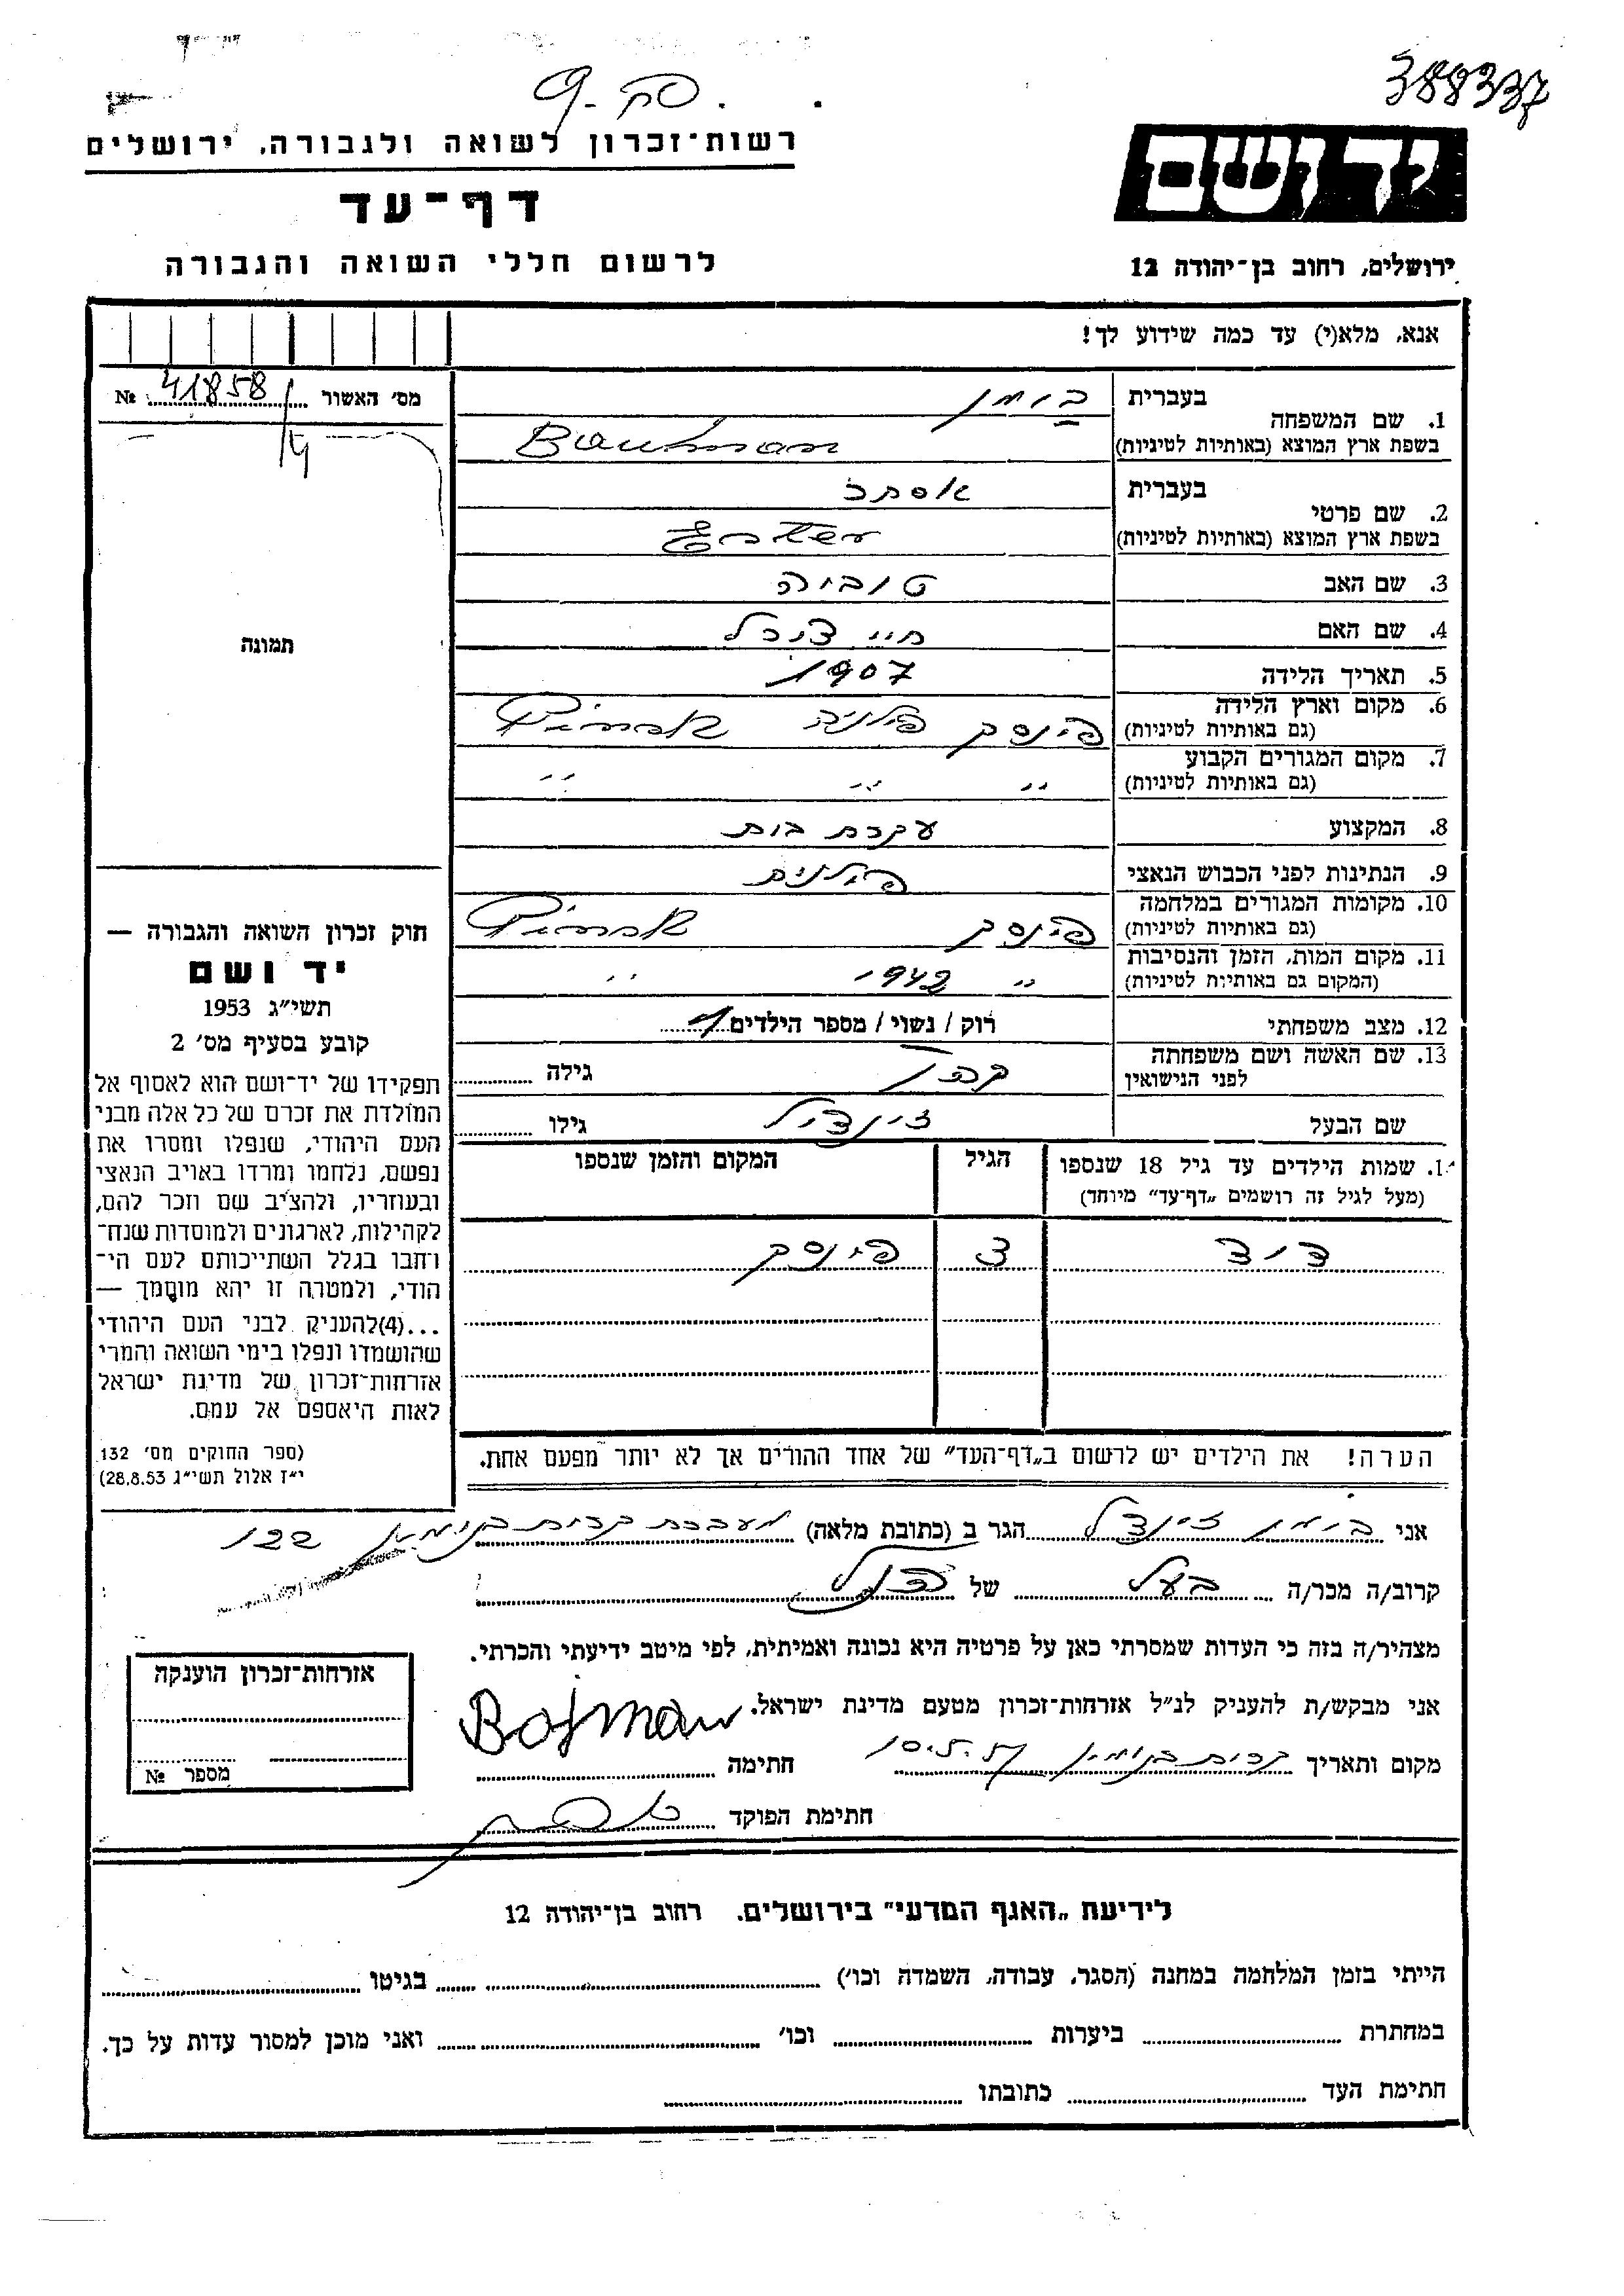 388337
רשות־זכרון לשואה ולגבורה, ירושלים
יד ושם
דף־עד
לרשום חללי השואה והגבורה
ירושלים, רחוב בן־יהודה 12
אנא, מלא(י) עד כמה שידוע לך!
מס׳ האשור 41858 №
1. שם המשפחה
בעברית בומן
בשפת ארץ המוצא (באותיות לטיניות) Bauman
2. שם פרטי
בעברית אסתר
בשפת ארץ המוצא (באותיות לטיניות) Ester
3. שם האב טוביה
4. שם האם
5. תאריך הלידה 1907
6. מקום וארץ הלידה
(גם באותיות לטיניות) פינסק פולניה Pinsk
7. מקום המגורים הקבוע
(גם באותיות לטיניות) ״ ״ ״
8. המקצוע עקרת בית
9. הנתינות לפני הכבוש הנאצי פולנית
10. מקומות המגורים במלחמה
(גם באותיות לטיניות) פינסק Pinsk
11. מקום המות, הזמן והנסיבות
(המקום גם באותיות לטיניות) ״ 1942 ״
12. מצב משפחתי רוק / נשוי / מספר הילדים 1
13. שם האשה ושם משפחתה
לפני הנישואין גילה
שם הבעל זינדל גילו
תמונה
חוק זכרון השואה והגבורה —
יד ושם
תשי״ג 1953
קובע בסעיף מס׳ 2
תפקידו של יד־ושם הוא לאסוף אל
המולדת את זכרם של כל אלה מבני
העם היהודי, שנפלו ומסרו את
נפשם, נלחמו ומרדו באויב הנאצי
ובעוזריו, ולהציב שם וזכר להם,
לקהילות, לארגונים ולמוסדות שנח־
רחבו בגלל השתייכותם לעם הי־
הודי, ולמטרה זו יהא מוסמך —
...(4) להעניק לבני העם היהודי
שהושמדו ונפלו בימי השואה והמרי
אזרחות־זכרון של מדינת ישראל
לאות היאספם אל עמם.
(ספר החוקים מס׳ 132
י״ז אלול תשי״ג 28.8.53)
1. שמות הילדים עד גיל 18 שנספו
(מעל לגיל זה רושמים „דף־עד״ מיוחד)
הגיל
המקום והזמן שנספו
דוד 3 פינסק
הערה! את הילדים יש לרשום ב„דף־העד״ של אחד ההורים אך לא יותר מפעם אחת.
אני בומן זינדל הגר ב (כתובת מלאה) מעברת קרית בנימין 122
קרוב/ה מכר/ה בעל של הנ״ל
מצהיר/ה בזה כי העדות שמסרתי כאן על פרטיה היא נכונה ואמיתית, לפי מיטב ידיעתי והכרתי.
אני מבקש/ת להעניק לנ״ל אזרחות־זכרון מטעם מדינת ישראל.
מקום ותאריך קרית בנימין 10.5.57 חתימה Bojman
חתימת הפוקד
אזרחות־זכרון הוענקה
מספר №
לידיעת „האגף המדעי״ בירושלים, רחוב בן־יהודה 12
הייתי בזמן המלחמה במחנה (הסגר, עבודה, השמדה וכו׳) בגיטו
במחתרת ביערות וכו׳ ואני מוכן למסור עדות על כך.
חתימת העד כתובתו